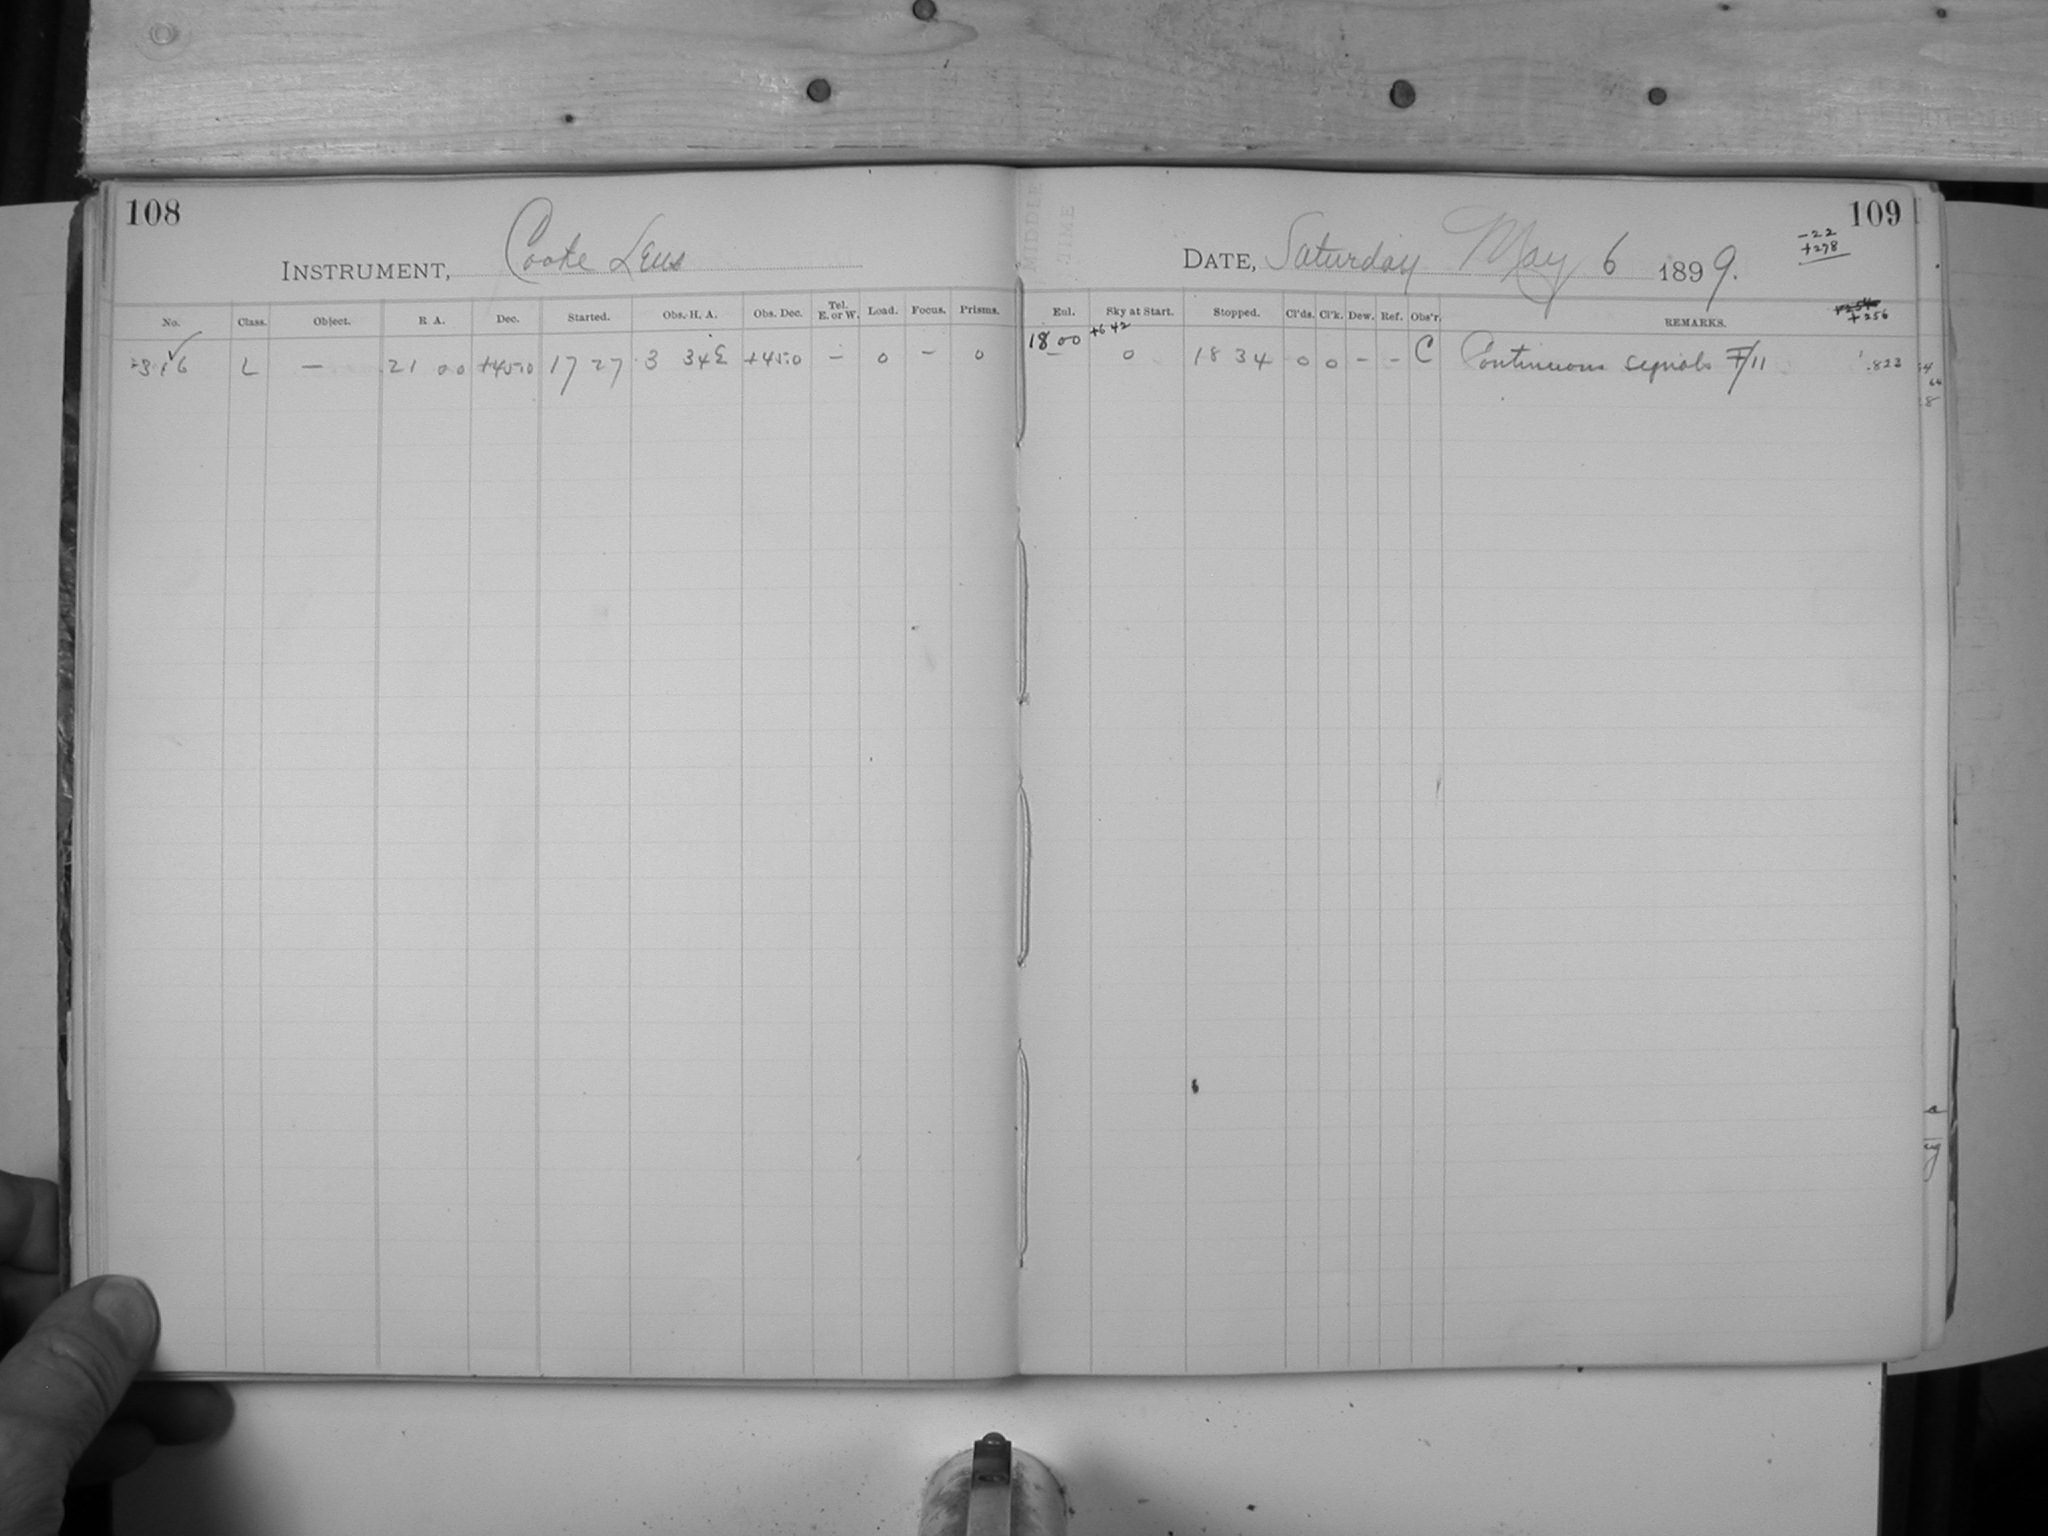 108
INSTRUMENT, Cooke Lens
No. Class. Object. R A. Dec. Started. Obs. H. A. Obs. Dec. Tel. E. or W. Load. Focus. Prisms.
L — 21 00 +45.0 17 27 3 34 E +45.0 — 0 — 0
MIDDLE
TIME
109
DATE, Saturday May 6 1899.
-22
+278
Eul. Sky at Start. Stopped. Cl'ds. Cl'k. Dew. Ref. Obs'r. REMARKS.
+256
18 00 +6 42
— 0 18 34 0 0 — — C Continuous signals F/11 .823